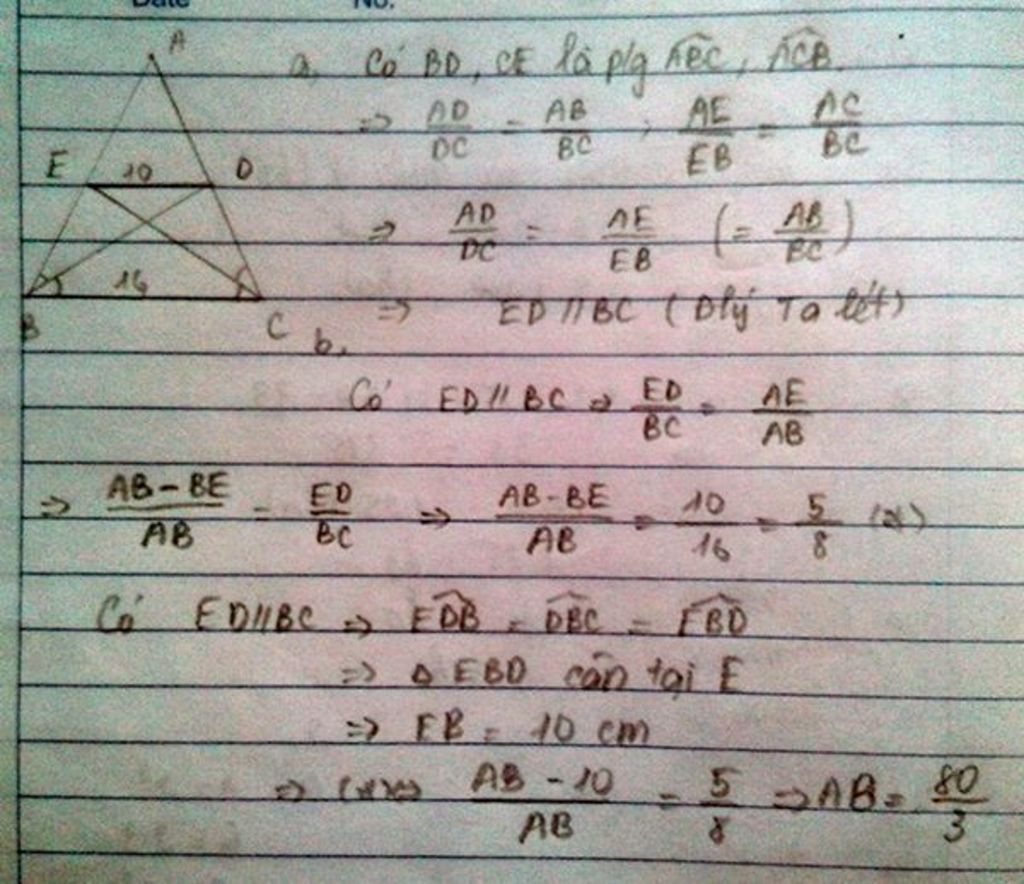 Date No.
A
E 10 D
16
B C
a, Có BD, CE là p/g ABC, ACB.
=> AD/DC = AB/BC ; AE/EB = AC/BC
=> AD/DC = AE/EB (= AB/BC)
=> ED // BC (Đlý Ta lét)
b,
Có ED // BC => ED/BC = AE/AB
=> AB-BE/AB = ED/BC => AB-BE/AB = 10/16 = 5/8 (*)
Có ED//BC => EDB = DBC = EBD
=> Δ EBD cân tại E
=> EB = 10 cm
=> (*) <=> AB - 10/AB = 5/8 => AB = 80/3